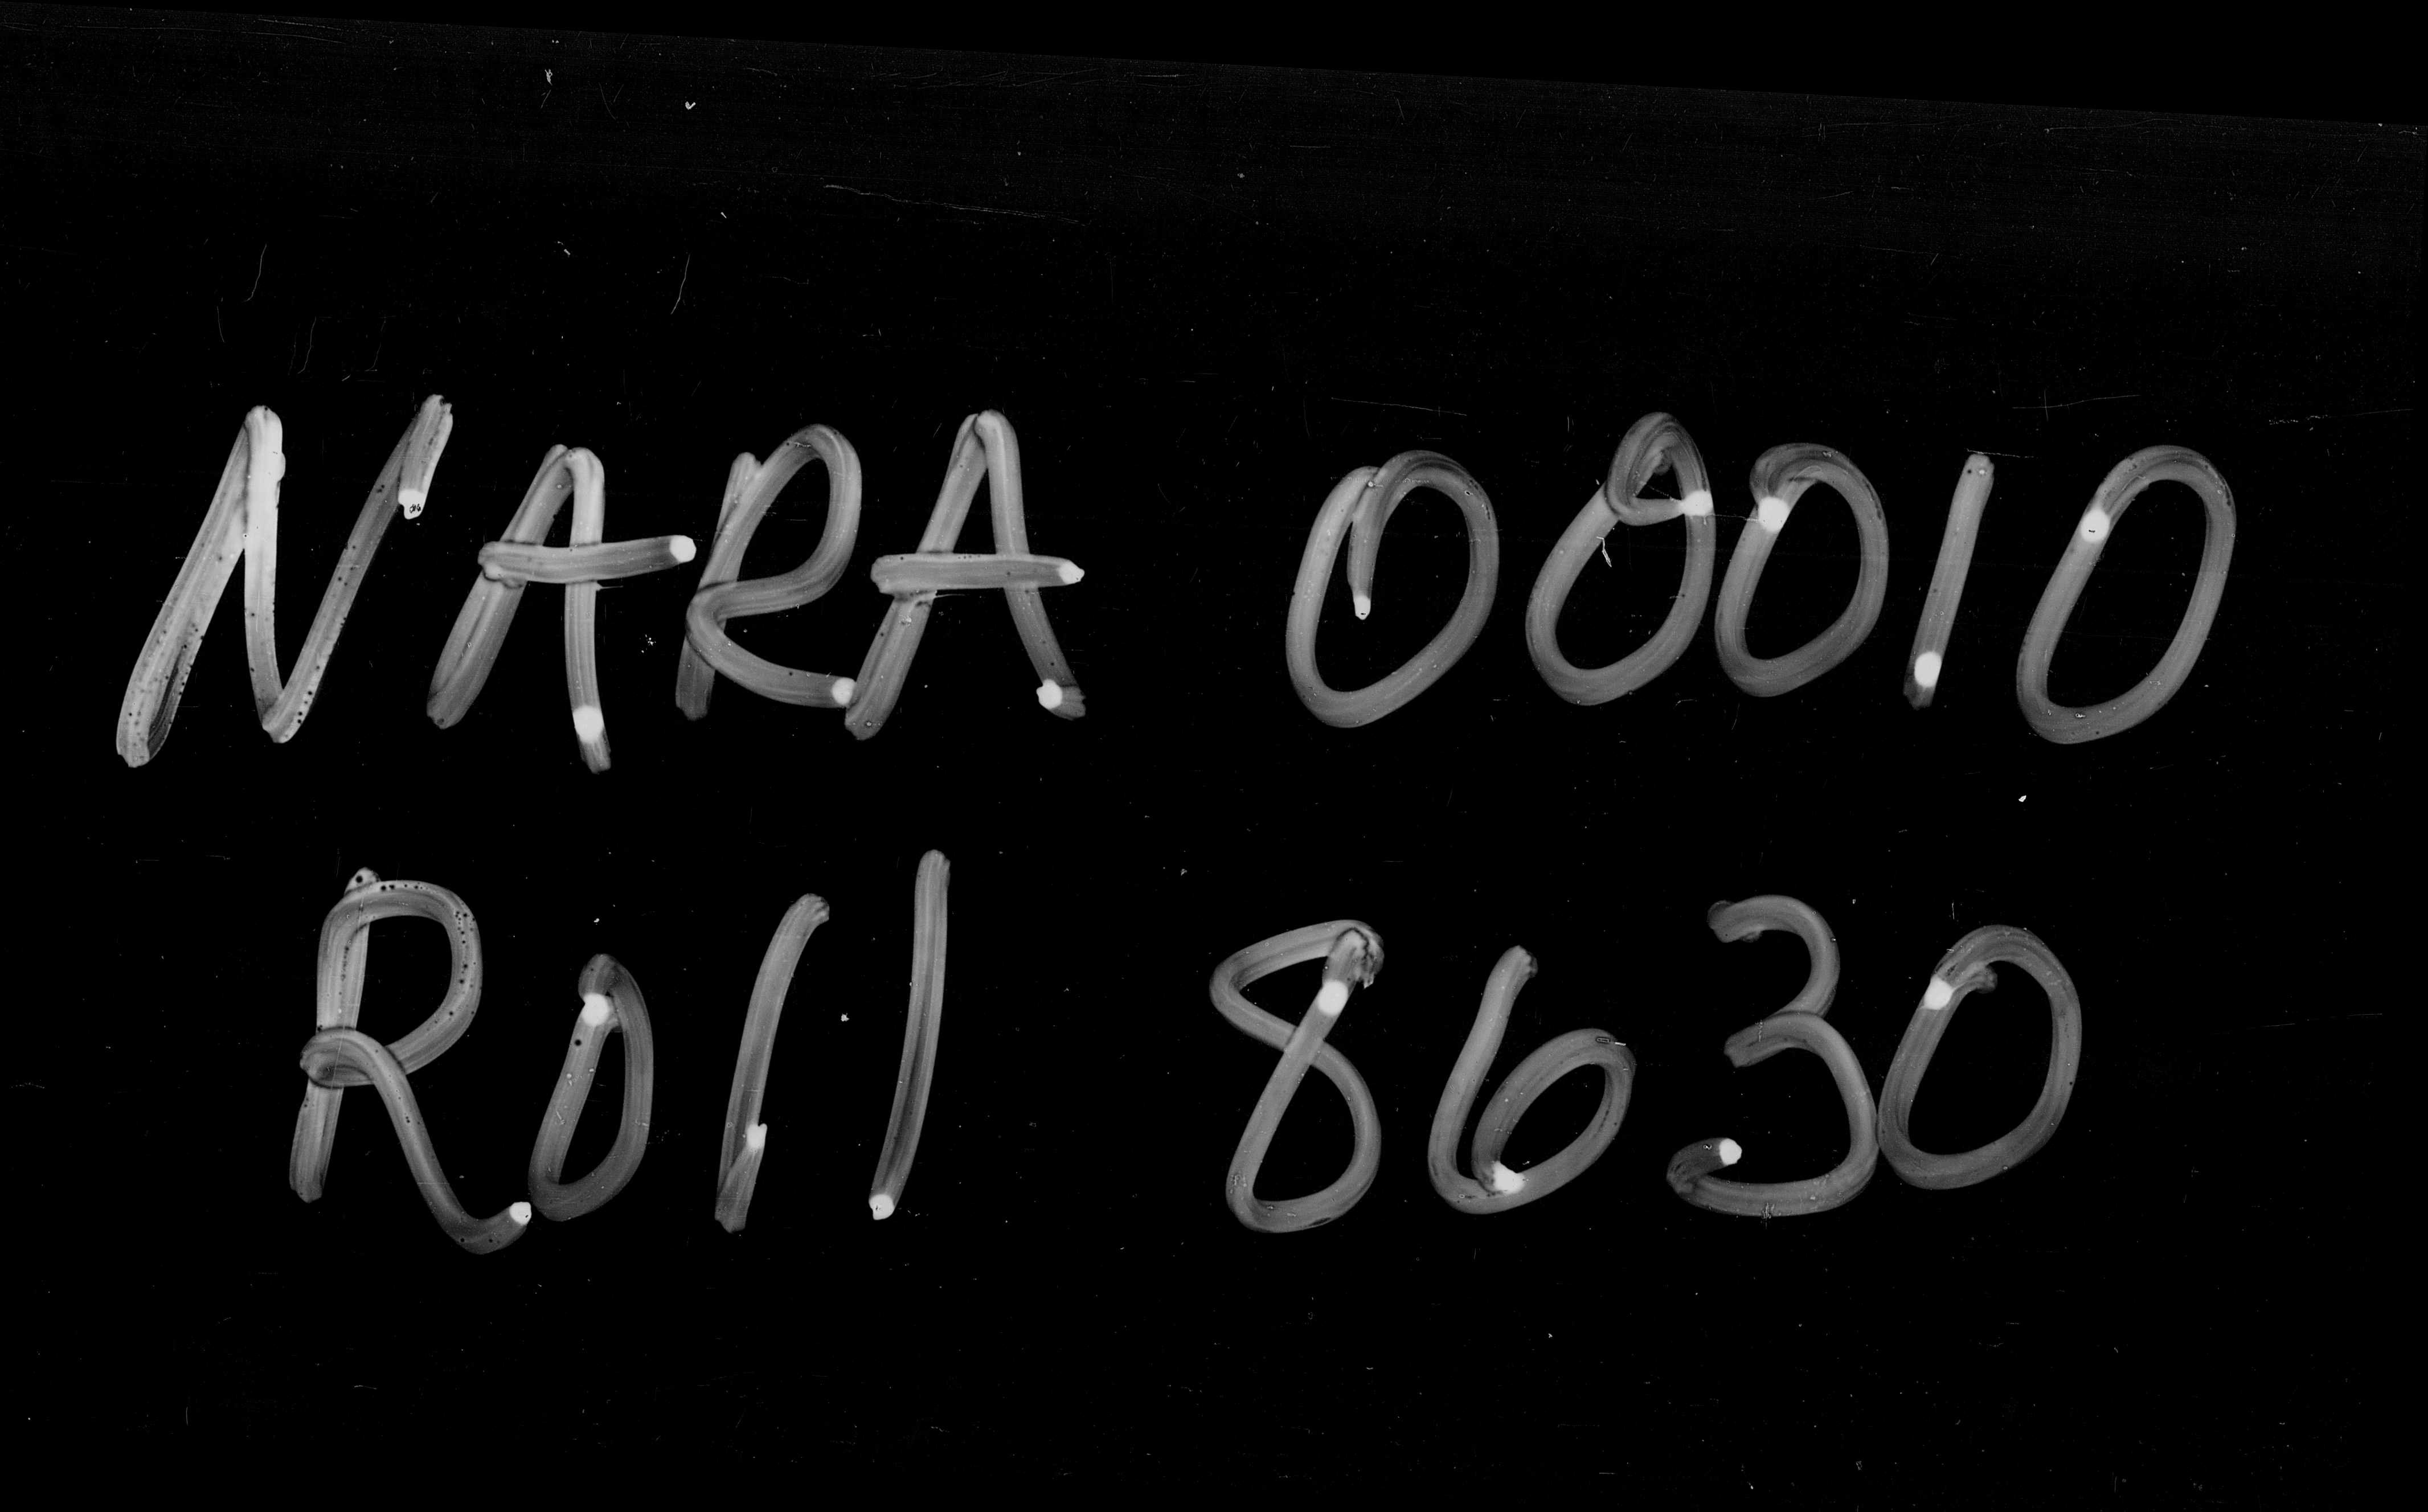 NARA 00010
Roll 8630